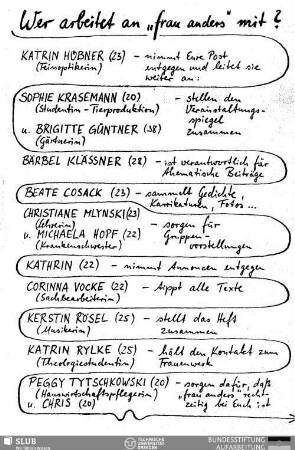 Wer arbeitet an „frau anders" mit?
KATRIN HÜBNER (23) – nimmt Eure Post
(Feinoptikerin) entgegen und leitet sie
weiter an:
SOPHIE KRASEMANN (20) – stellen den
(Studentin – Tierproduktion) Veranstaltungs-
spiegel
u. BRIGITTE GÜNTNER (38) zusammen
(Gärtnerin)
BÄRBEL KLÄSSNER (28) – ist verantwortlich für
thematische Beiträge
BEATE COSACK (23) – sammelt Gedichte,
Karrikaturen, Fotos ...
CHRISTIANE MLYNSKI (23)
(Lehrerin) – sorgen für
u. MICHAELA HOPF (22) Gruppen-
(Krankenschwester) vorstellungen
KATHRIN (22) – nimmt Annoncen entgegen
CORINNA VOCKE (22) – tippt alle Texte
(Sachbearbeiterin)
KERSTIN RÖSEL (25) – stellt das Heft
(Musikerin) zusammen
KATRIN RYLKE (25) – hält den Kontakt zum
(Theologiestudentin) Frauenwerk
PEGGY TYTSCHKOWSKI (20) – sorgen dafür, daß
(Hauswirtschaftspflegerin) „frau anders" recht-
u. CHRIS (20) zeitig bei Euch ist
SLUB
TECHNISCHE
UNIVERSITÄT
DRESDEN
BUNDESSTIFTUNG
AUFARBEITUNG